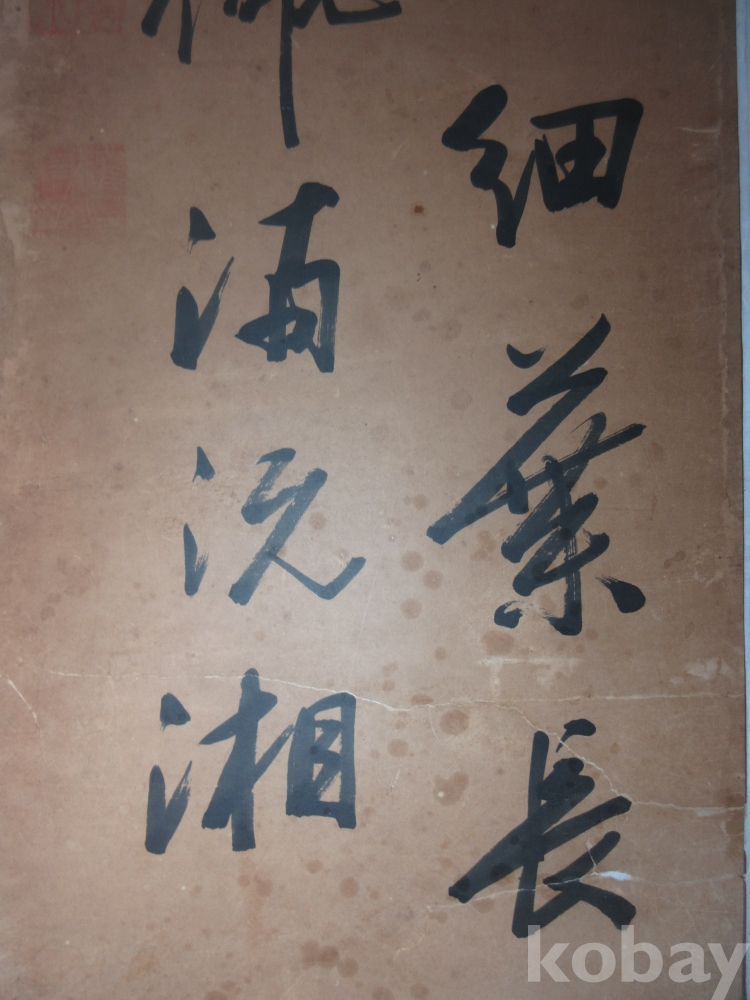 細葉長
滿沅湘
kobay